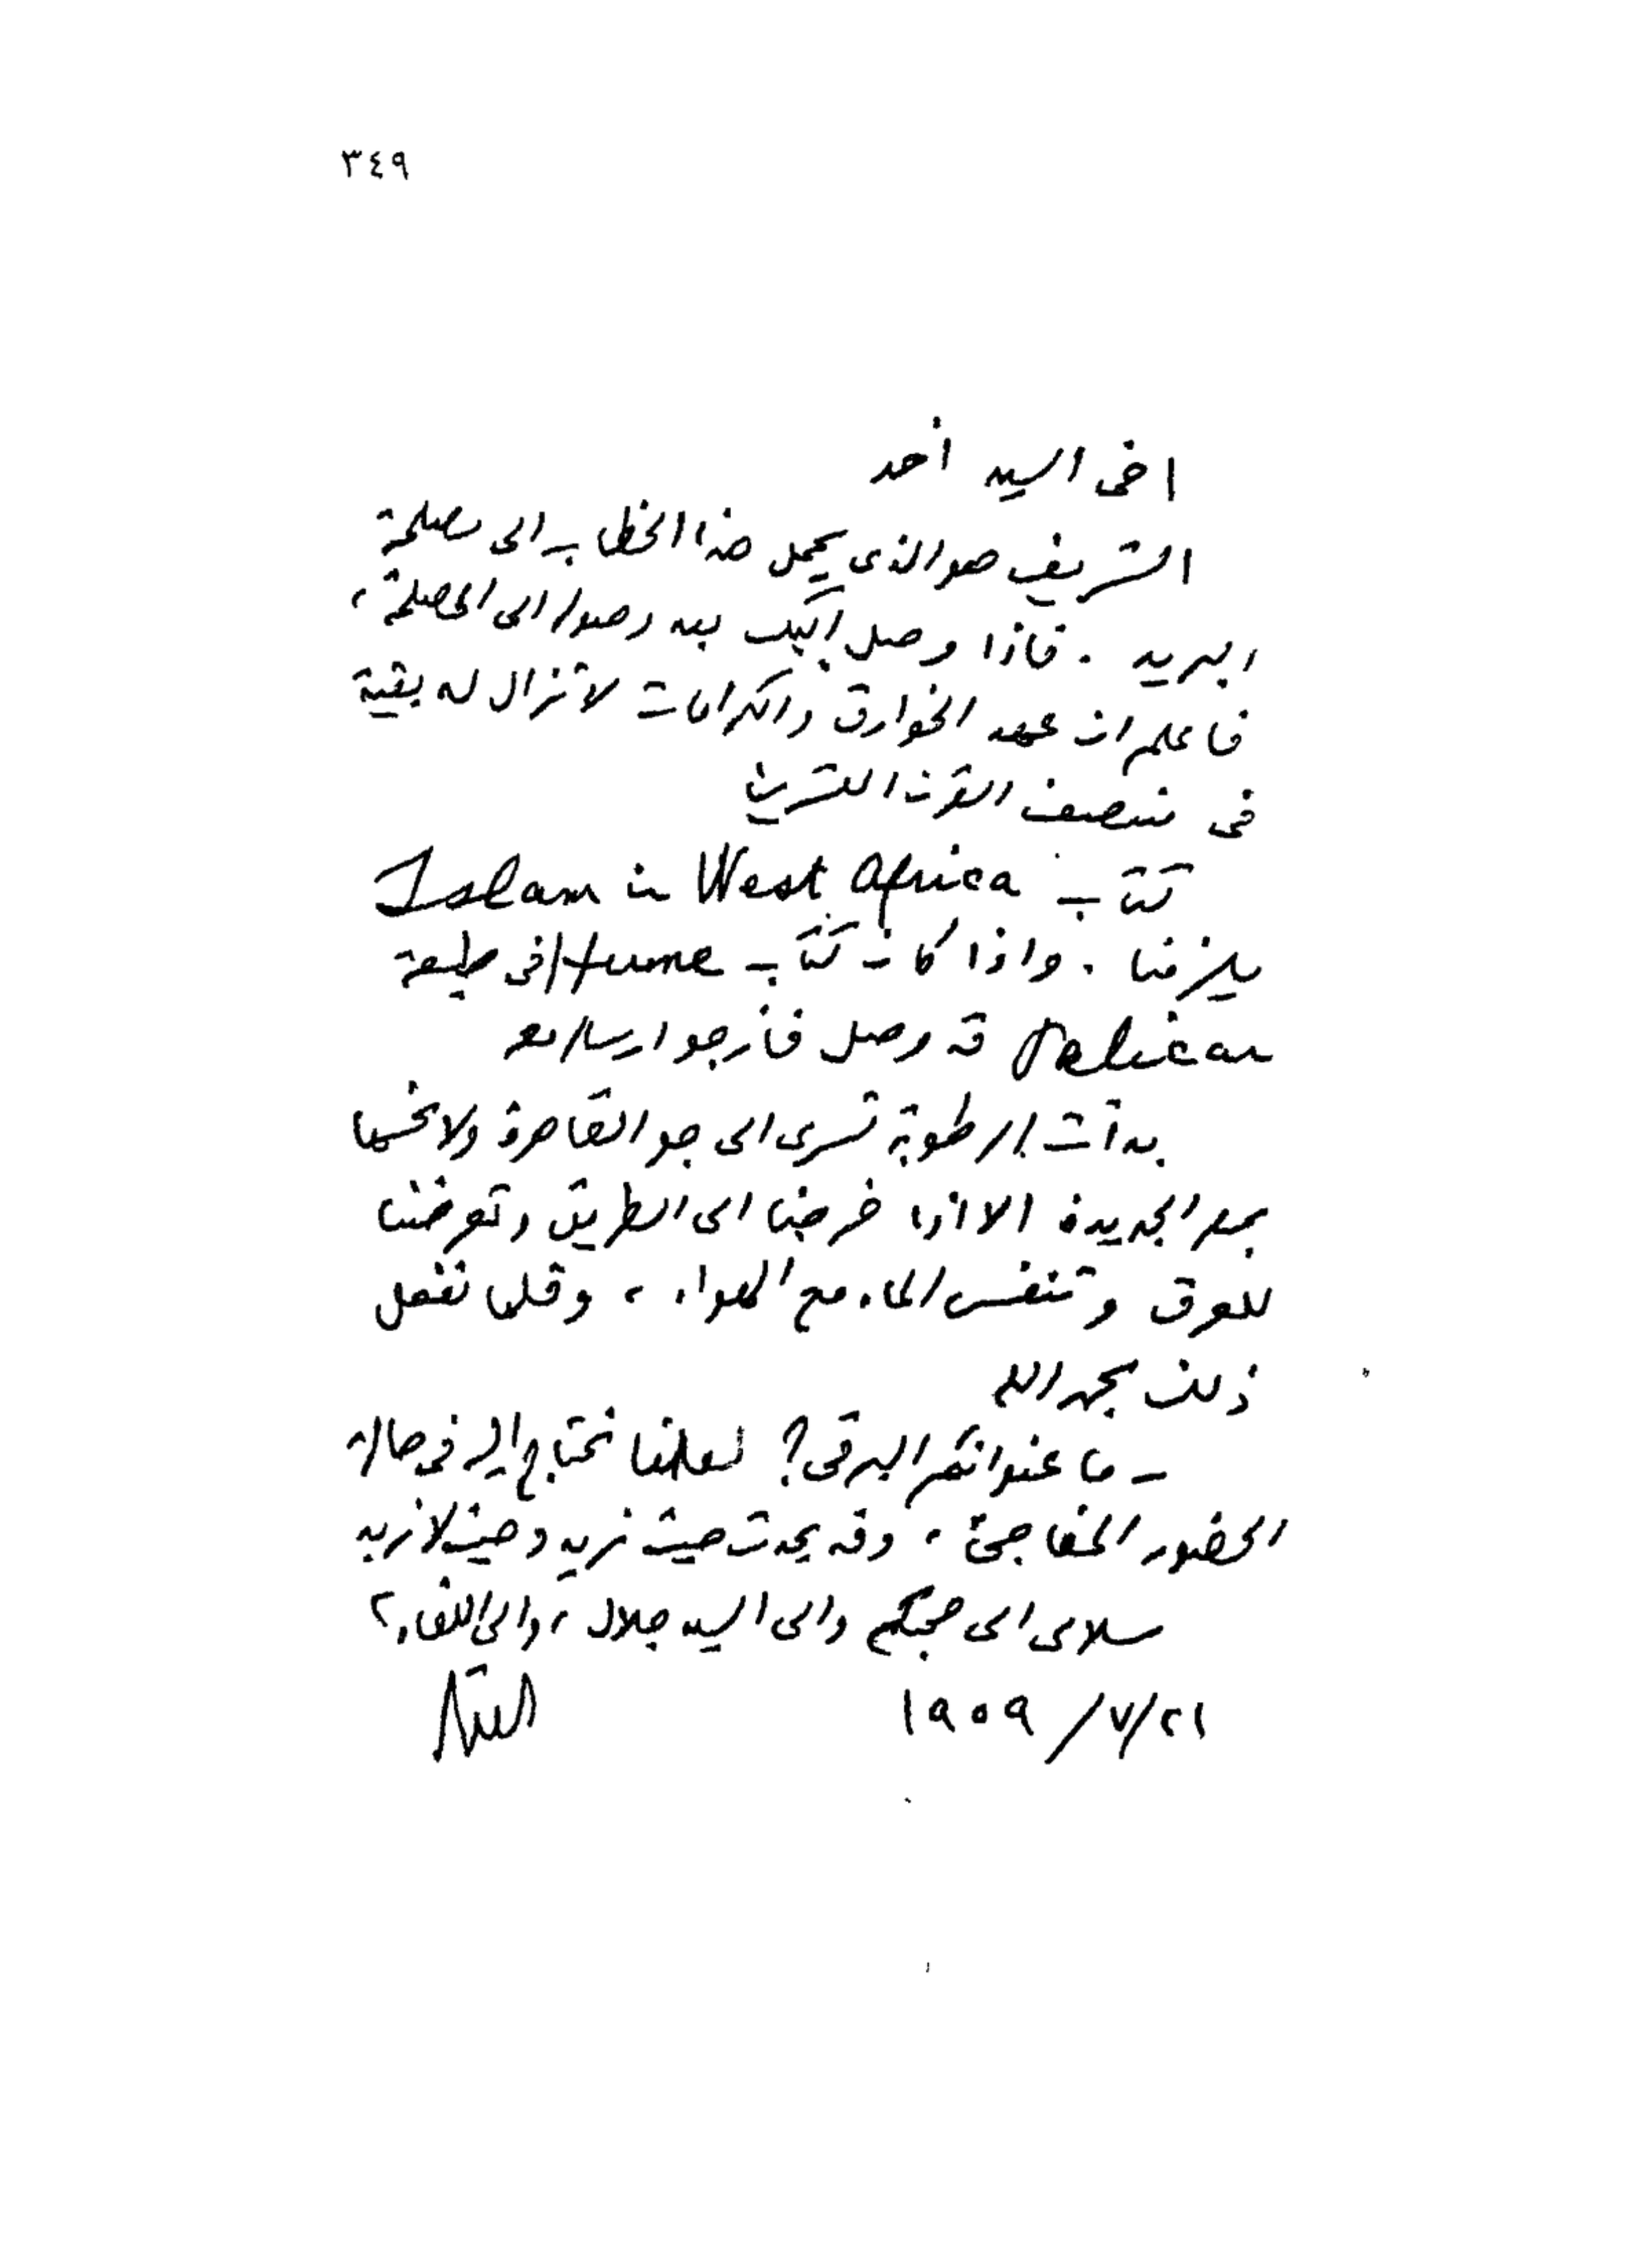 ٣٤٩
اخى السيد احمد
الشريف هو الذى يحمل هذا الخطاب الى مصلحة
البريد . فاذا وصل اليك بعد وصوله الى المصلحة ،
فاعلم ان عهد الخوارق والكرامات لا تزال له بقية
فى منتصف القرن العشرين
كتاب Islam in West Africa
يلزمنا . واذا كان كتاب Hume فى طبعة
Pelican قد وصل فأرجو ارساله معه
بدأت الرطوبة تسرى الى جو القاهرة ولا نحسها
بمصر الجديدة الا اذا خرجنا الى الطريق وتعرضنا
للعرق وتنفس الماء مع الهواء ، وقلما نفعل
ذلك بحمد الله
ـ ما عنوانكم البرقى ؟ لعلنا نحتاج اليه فى حالة
الحضور المفاجئ ، وقد يحدث حيث نريد وحيث لا نريد
سلامى الى صحبكم والى السيد جلال ، والى اللقاء ؟
٢١/٧/١٩٥٩